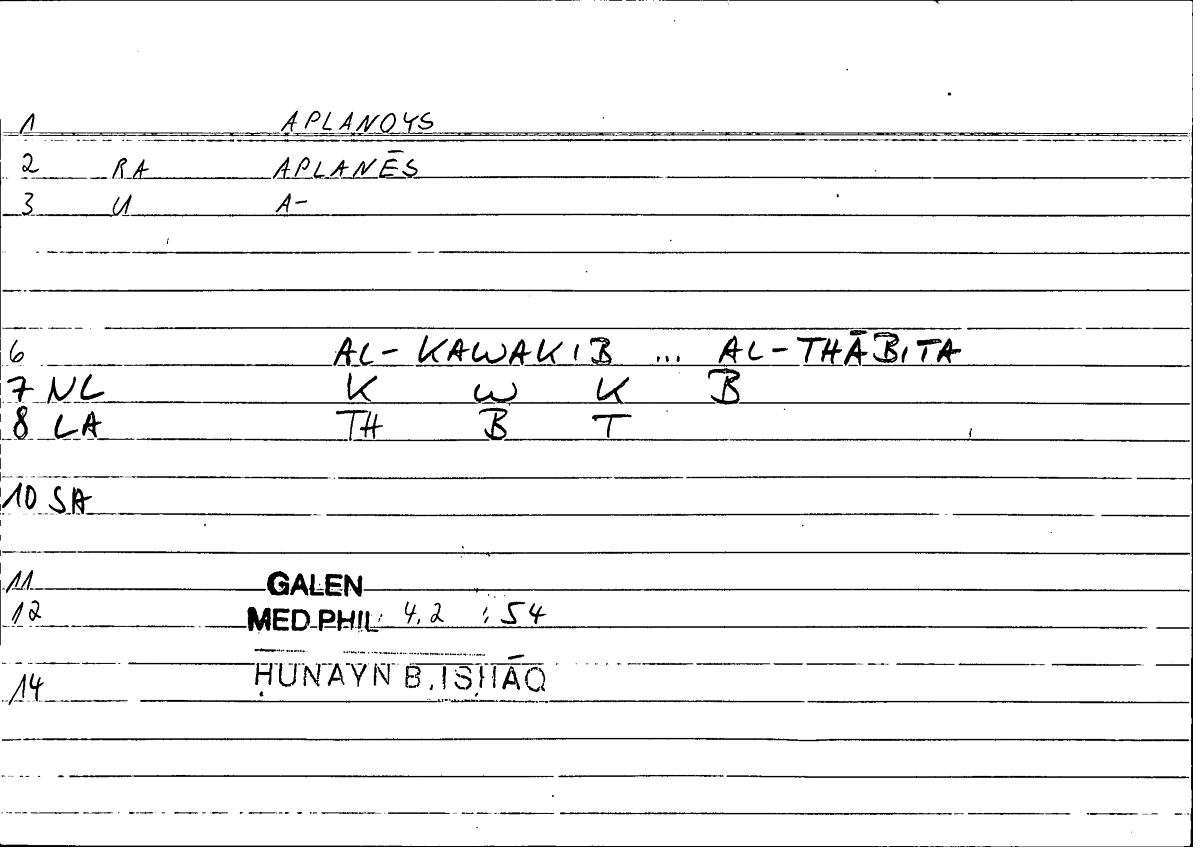 1 APLANOYS
2 RA APLANĒS
3 U A-
6 AL-KAWAKIB ... AL-THĀBITA
7 NL K W K B
8 LA TH B T
10 SA
11 GALEN
12 MED.PHIL: 4.2 : 54
14 ḤUNAYN B.ISḤĀQ